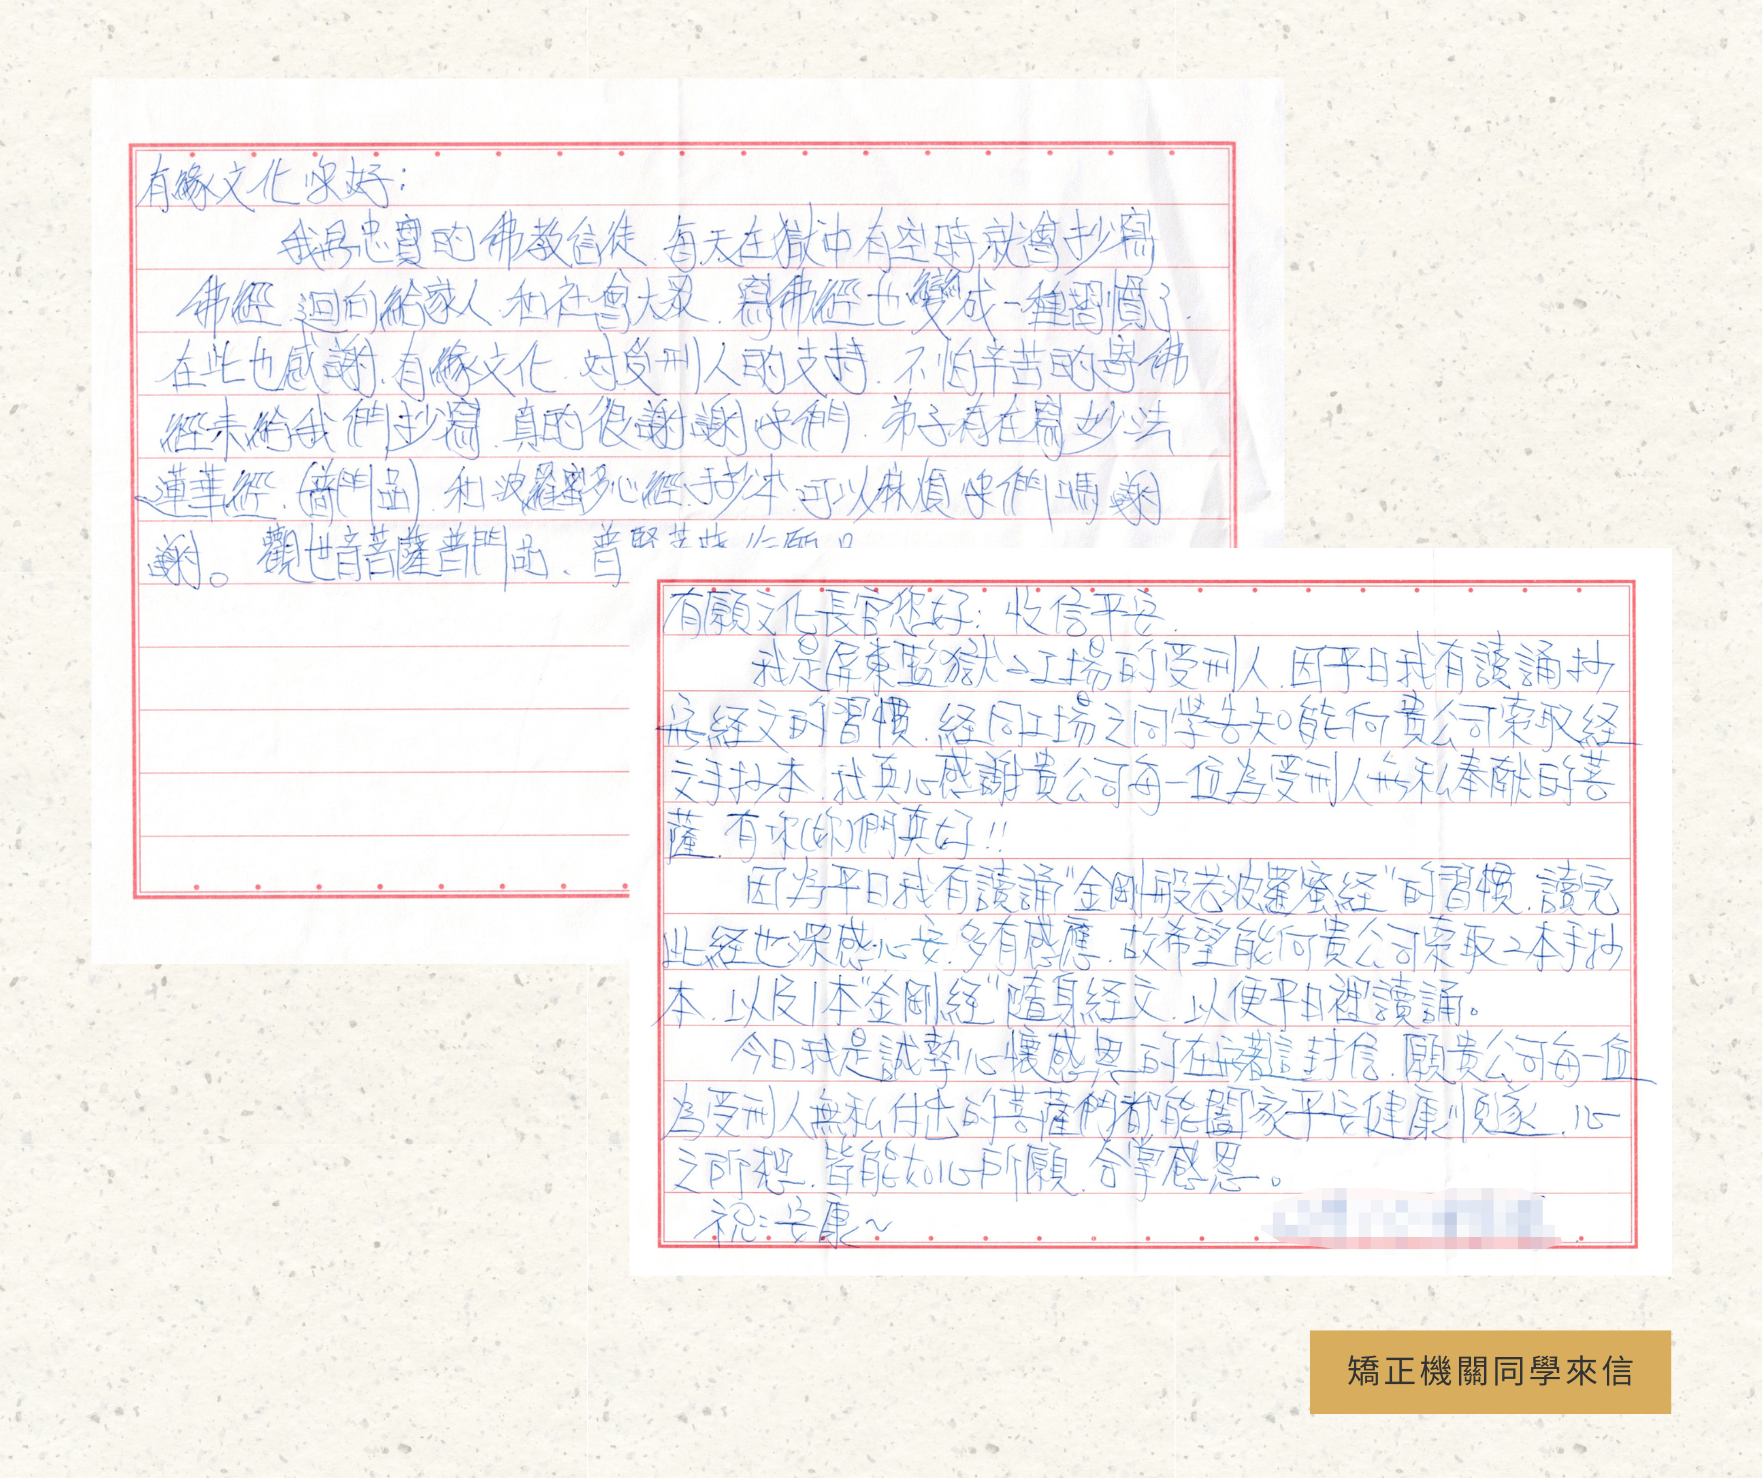 有緣文化你好：
我是忠實的佛教信徒.每天在獄中有空時就會抄寫
佛經.迴向給家人.和社會大眾.寫佛經也變成一種習慣了.
在此也感謝.有緣文化.對受刑人的支持.不怕辛苦的寄佛
經來給我們抄寫.真的很謝謝你們.弟子有在寫妙法
蓮華經.(普門品)和波羅蜜多心經、手抄本.可以麻煩你們嗎謝
謝。觀世音菩薩普門品、普賢菩薩行願品
有願文化長官您好：收信平安.
我是屏東監獄2工場的受刑人.因平日我有讀誦抄
寫経文的習慣.経同工場之同學告知能向貴公司索取経
文手抄本.我真心感謝貴公司每一位為受刑人無私奉献的菩
薩.有你(妳)們真好!!
因為平日我有讀誦"金剛般若波羅蜜経"的習慣.讀完
此経也深感心安.多有感應.故希望能向貴公司索取2本手抄
本.以及1本"金剛経"隨身経文.以便平日裡讀誦。
今日我是誠摯心懷感恩的在寫著這封信.願貴公司每一位
為受刑人無私付出的菩薩們都能闔家平安健康順遂.心
之所想.皆能如心所願.合掌感恩。
祝:安康~
矯正機關同學來信